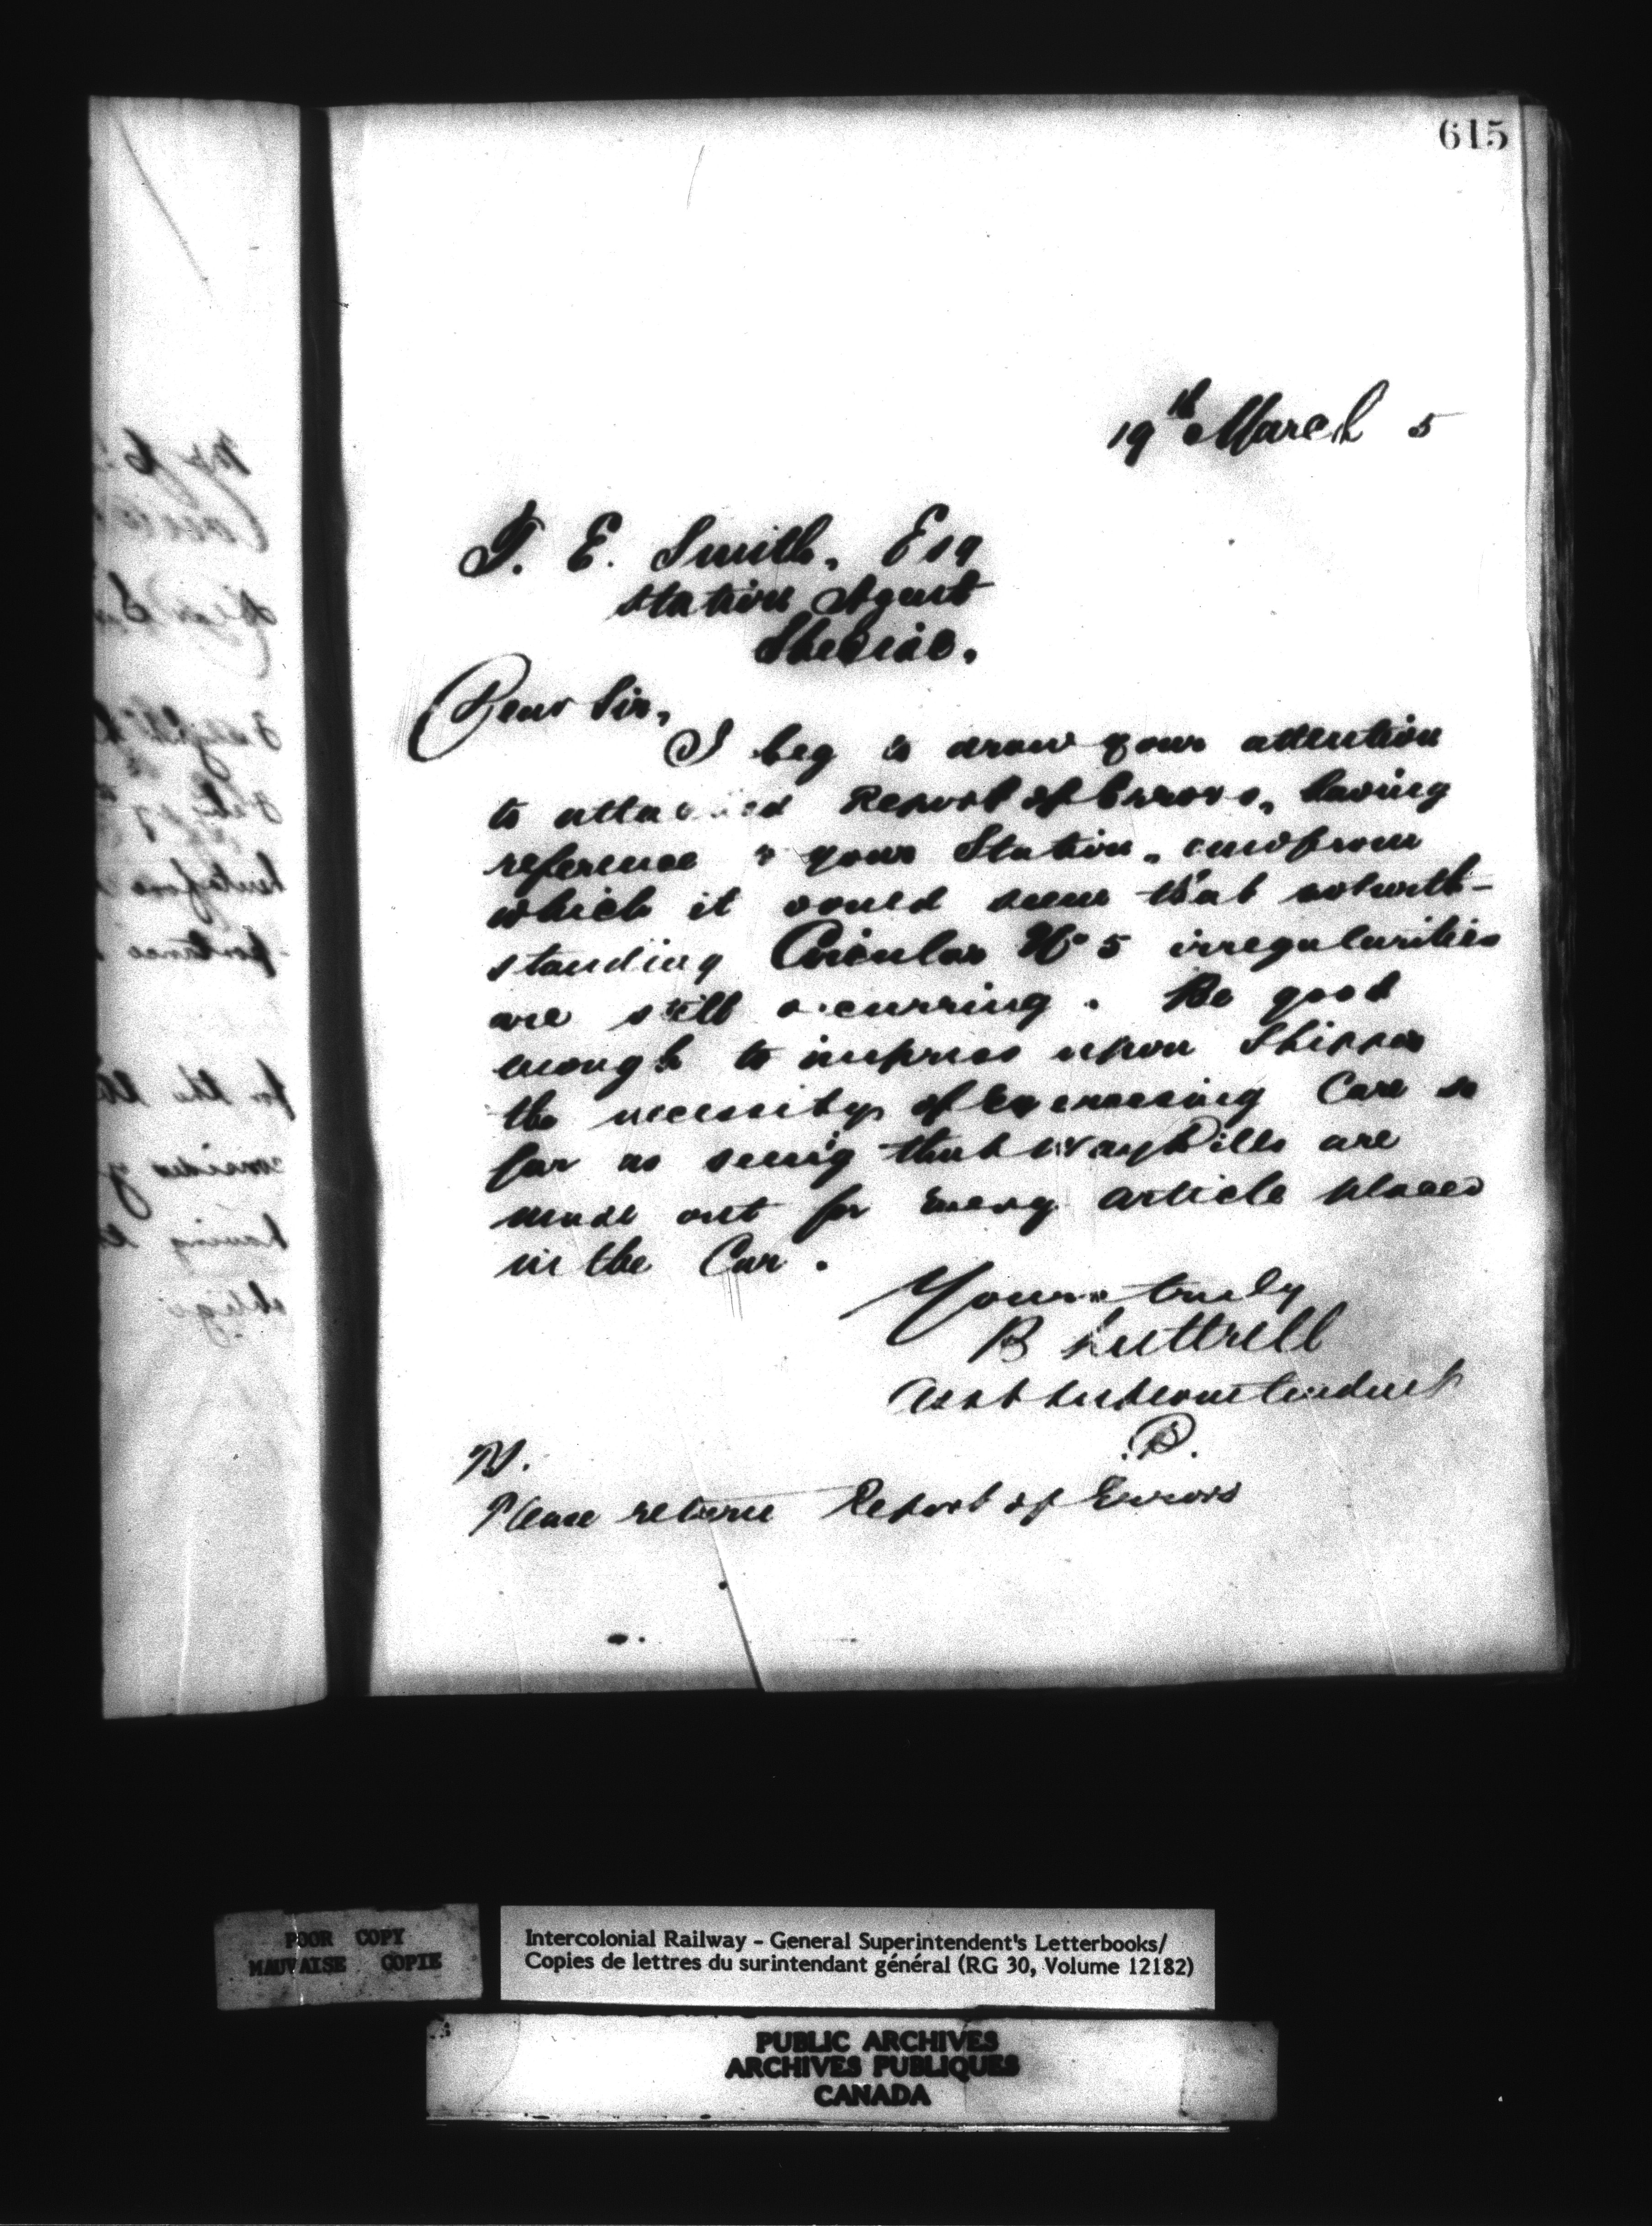 615
19th March 5
T. E. Smith. Esq
Station Agent
Shediac.
Dear Sir,
I beg to draw your attention
to attached Report of Errors, having
reference to your Station, and from
which it would seem that notwith-
standing Circular No 5 irregularities
are still occurring. Be good
enough to impress upon Shippers
the necessity of exercising Care so
far as seeing that waybills are
made out for every article placed
in the Car.
Yours truly
B Luttrell
Asst Superintendent
B.
Please return Report of Errors
POOR COPY
MAUVAISE COPIE
Intercolonial Railway - General Superintendent's Letterbooks/
Copies de lettres du surintendant général (RG 30, Volume 12182)
PUBLIC ARCHIVES
ARCHIVES PUBLIQUES
CANADA